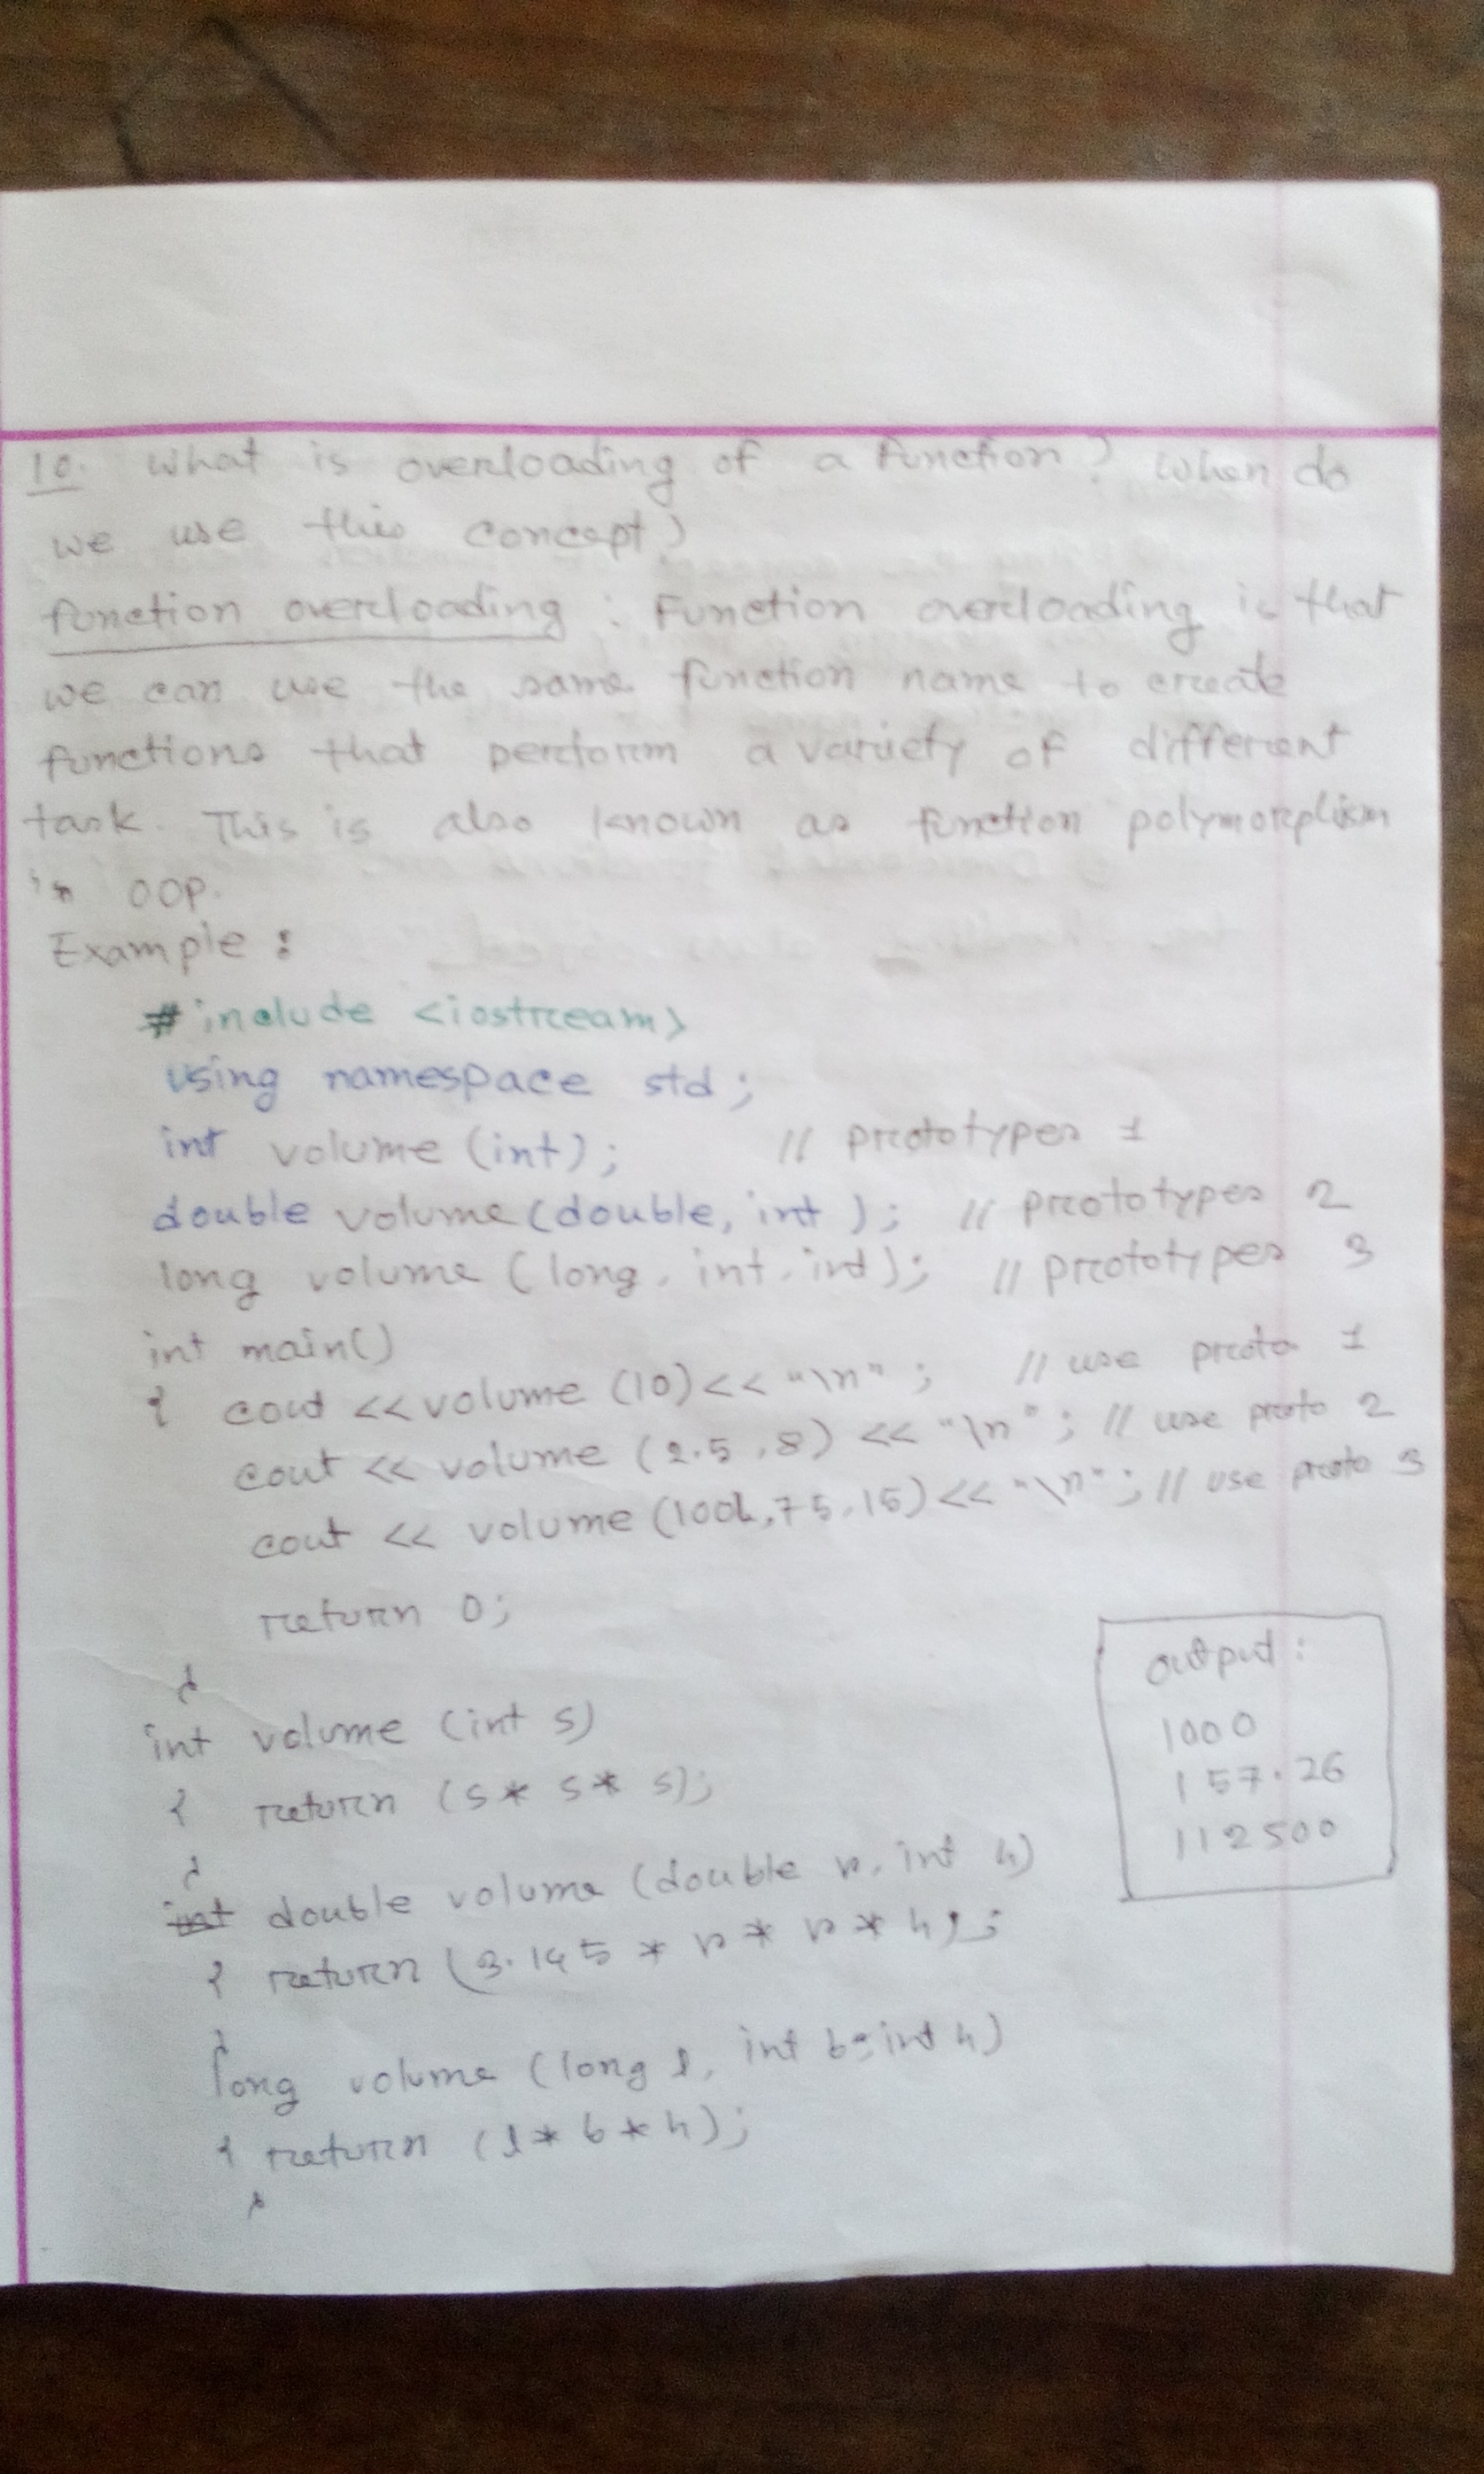 10. What is overloading of a function? When do
we use this concept?
function overloading : Function overloading is that
we can use the same function name to create
functions that perform a variety of different
task. This is also known as function polymorphism
in OOP.
Example :
#include <iostream>
using namespace std ;
int volume (int) ; // prototypes 1
double volume (double, int ) ; // prototypes 2
long volume (long, int, int) ; // prototypes 3
int main()
{ cout << volume (10) << "\n" ; // use proto 1
cout << volume (2.5, 8) << "\n" ; // use proto 2
cout << volume (100L, 75, 15) << "\n" ; // use proto 3
return 0;
}
int volume (int s)
{ return (s* s* s);
}
int double volume (double r, int h)
{ return (3.145 * r * r * h) ;
}
long volume (long l, int b, int h)
{ return (l * b * h);
}
output :
1000
157.26
112500